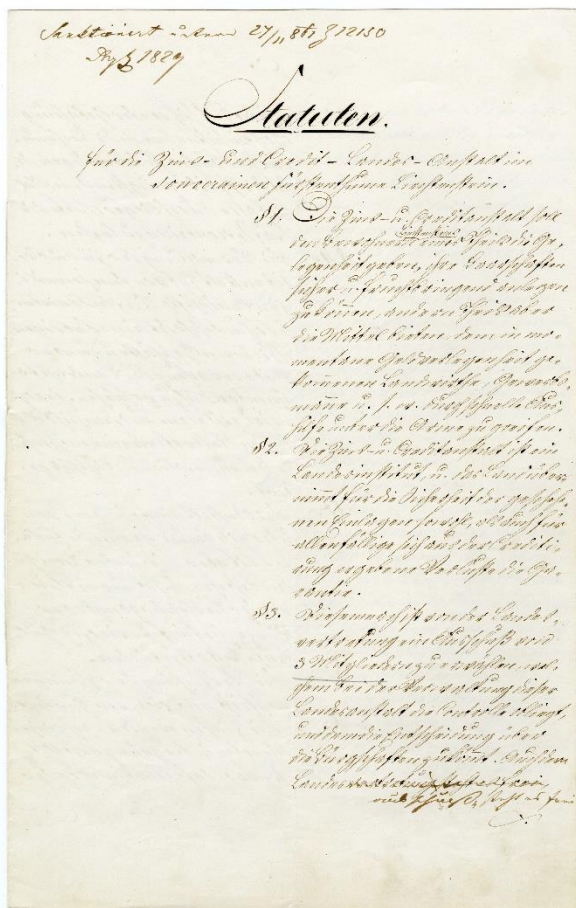 Sanktioniert unterm 27/11 861 Z 12150
1829
Statuten.
für die Zins- und Credit-Landes-Anstalt im
souverainen Fürstenthume Liechtenstein.
§1. Die Zins- u. Creditanstalt soll
den Bewohnern Liechtensteins eines Theils die Ge-
legenheit geben, ihre Baarschaften
sicher u. fruchtbringend anlegen
zu können, andern Theils aber
die Mittel bieten, dem in mo-
mentane Geldverlegenheit ge-
kommenen Landwirthe, Gewerbs-
manne u. s. w. durch schnelle Aus-
hilfe unter die Arme zu greifen.
§2. Die Zins- u. Creditanstalt ist ein
Landesinstitut, u. das Land über-
nimmt für die Sicherheit der gescheh-
nen Einlagen sowohl, als auch für
allenfällige sich aus der Crediti-
rung ergebene Verluste die Ga-
rantie.
§3. Diesemnach ist von der Landes-
vertretung ein Ausschuß von
3 Mitgliedern zu erwählen, wel-
chem bei der Verwaltung dieser
Landesanstalt die Controlle obliegt,
und dem die Entscheidung über
die Bürgschaften zukömmt. Auch dem
Landes
ausschuße, steht es frei